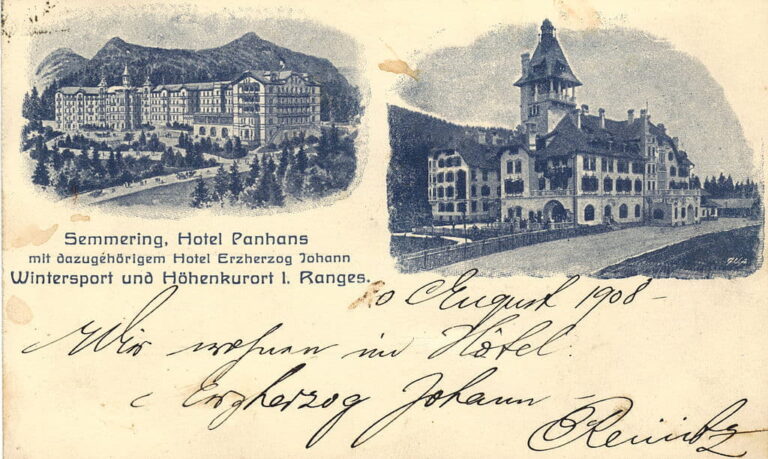 Semmering, Hotel Panhans
mit dazugehörigem Hotel Erzherzog Johann
Wintersport und Höhenkurort I. Ranges.
10 August 1908 -
Wir wohnen im Hôtel
Erzherzog Johann -